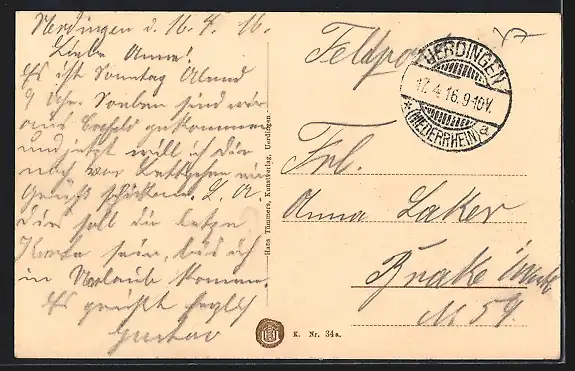 Uerdingen d. 16.4.16.
Liebe Anna!
Es ist Sonntag Abend
9 Uhr. Soeben sind wir
aus Crefeld gekommen
und jetzt will ich dir
noch vor Bettgehen ein
Gruß schicken. L. A.
dies soll die letzte
Karte sein, bis ich
in Urlaub komme.
Es grüßt herzlich
Gustav
Hans Tümmers, Kunstverlag, Uerdingen
Feldpost
UERDINGEN
17.4.16.9-10V.
* (NIEDERRHEIN) a
Frl.
Anna Laker
Brake
M 59
K. Nr. 34a.